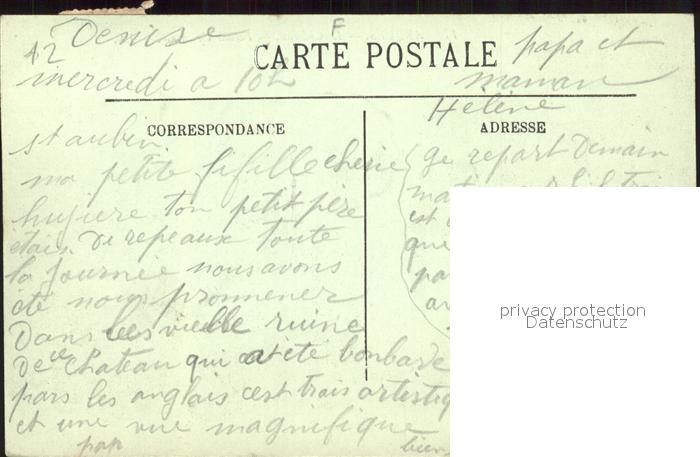 42 Denise
F
CARTE POSTALE
papa et
maman
Hélène
mercredi a 10h
CORRESPONDANCE
ADRESSE
st aubin
ma petite fifille cherie
hujiere ton petit père
etais de repeaux toute
la journée nous avons
été nous promener
Dans les vieille ruine
De ce chateau qui a été bonbardé
pars les anglais cest trais artistiq
et une vue magnifique
pap
bien
ge repart Demain
mat
est
que
pa
privacy protection
Datenschutz